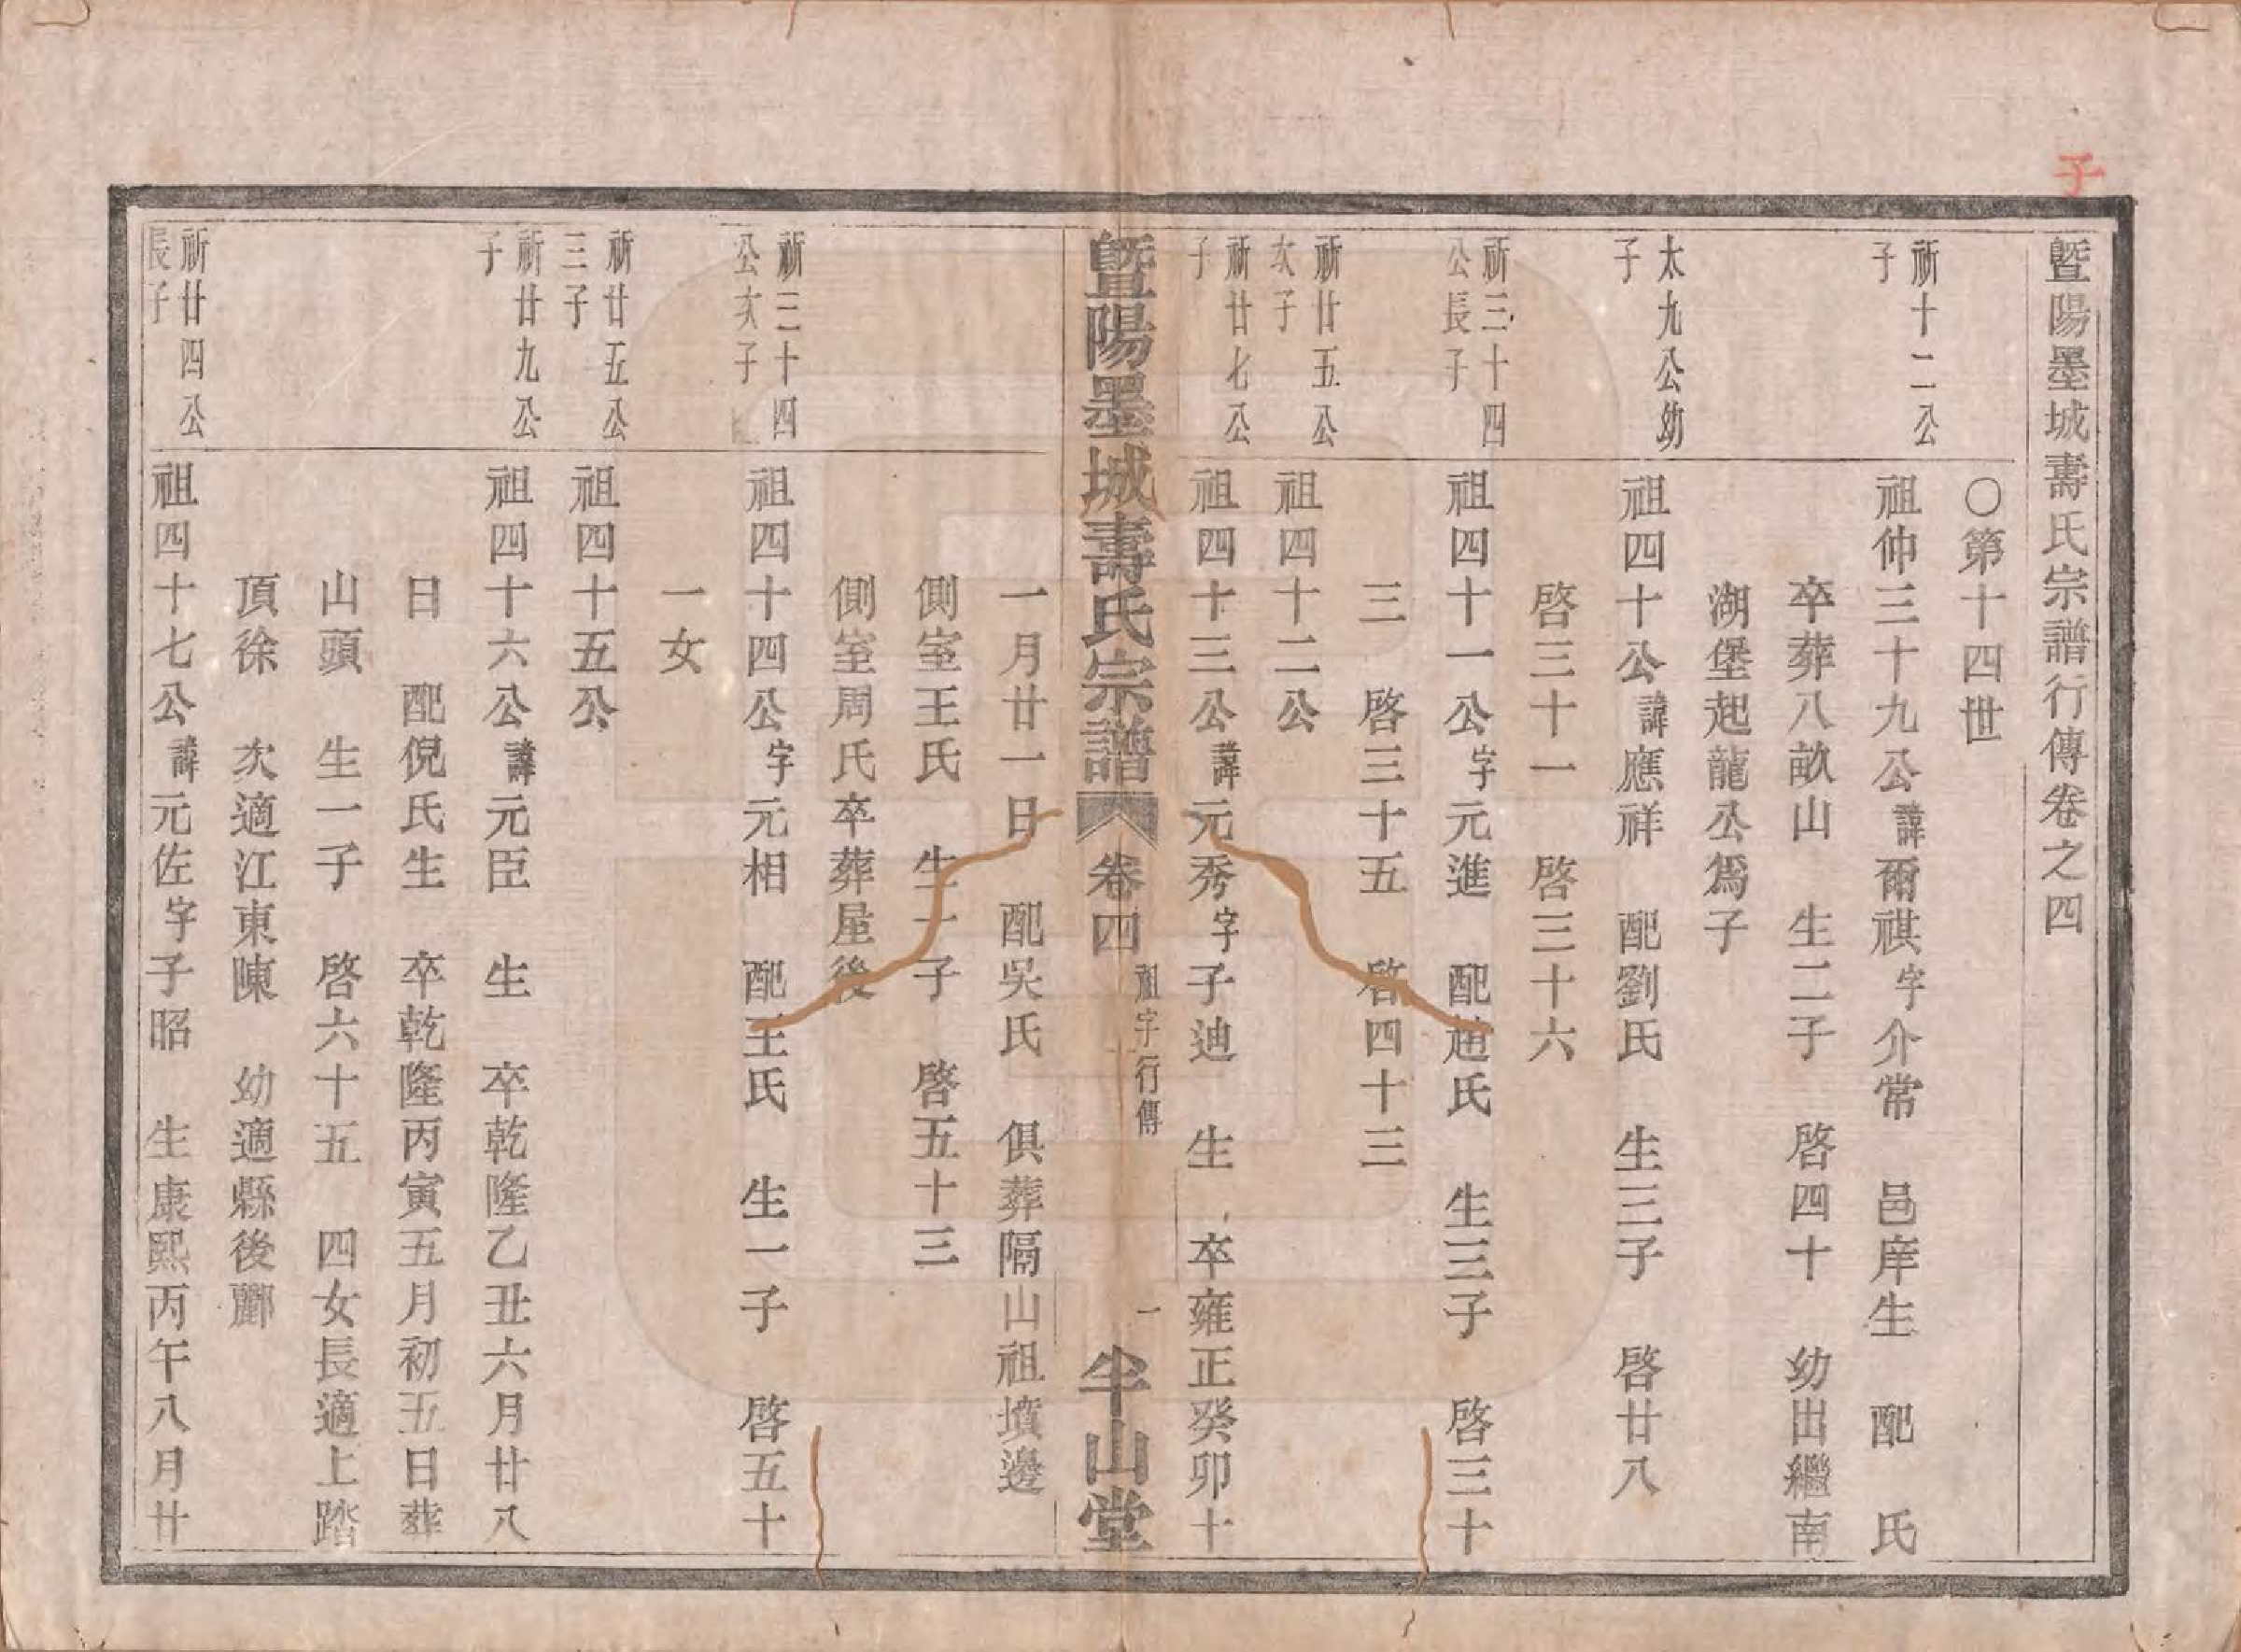 子
暨陽墨城壽氏宗譜行傳卷之四
○第十四世
祈十二公
子
祖仲三十九公諱爾祺字介常　邑庠生　配　氏
卒葬八畝山　生二子　啓四十　幼出繼南
湖堡起龍公爲子
太九公幼
子
祖四十公諱應祥　配劉氏　生三子　啓廿八
啓三十一　啓三十六
祈三十四
公長子
祖四十一公字元進　配趙氏　生三子　啓三十
三　啓三十五　啓四十三
祈廿五公
次子
祖四十二公
祈廿七公
子
祖四十三公諱元秀字子迪　生　卒雍正癸卯十
暨陽墨城壽氏宗譜　卷四　祖字行傳　一　半山堂
一月廿一日　配吳氏　俱葬隔山祖墳邊
側室王氏　生一子　啓五十三
側室周氏卒葬屋後
祈三十四
公次子
祖四十四公字元相　配王氏　生一子　啓五十
一女
祈廿五公
三子
祖四十五公
祈廿九公
子
祖四十六公諱元臣　生　卒乾隆乙丑六月廿八
日　配倪氏生　卒乾隆丙寅五月初五日葬
山頭　生一子　啓六十五　四女長適上踏
頂徐　次適江東陳　幼適縣後酈
祈廿四公
長子
祖四十七公諱元佐字子昭　生康熙丙午八月廿